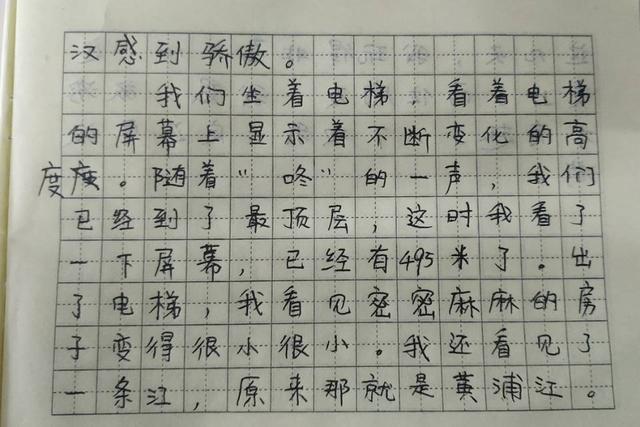 汉感到骄傲。
我们坐着电梯，看着电梯
的屏幕上显示着不断变化的高
度度。随着“咚”的一声，我们
已经到了最顶层，这时我看了
一下屏幕，已经有495米了。出
了电梯，我看见密密麻麻的房
子变得很小很小。我还看见了
一条江，原来那就是黄浦江。